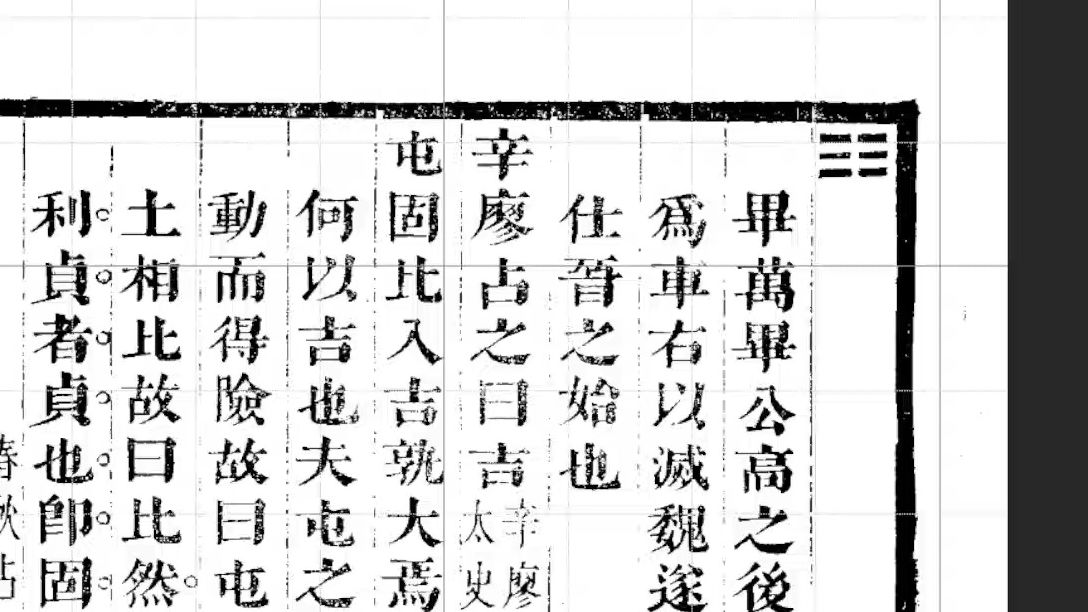 ☷
畢萬畢公高之後
爲車右以滅魏遂
仕晉之始也
辛廖占之曰吉辛廖
太史
屯固比入吉孰大焉
何以吉也夫屯之
動而得險故曰屯
土相比故曰比然。
利。貞。者。貞。也。卽。固。
春秋占